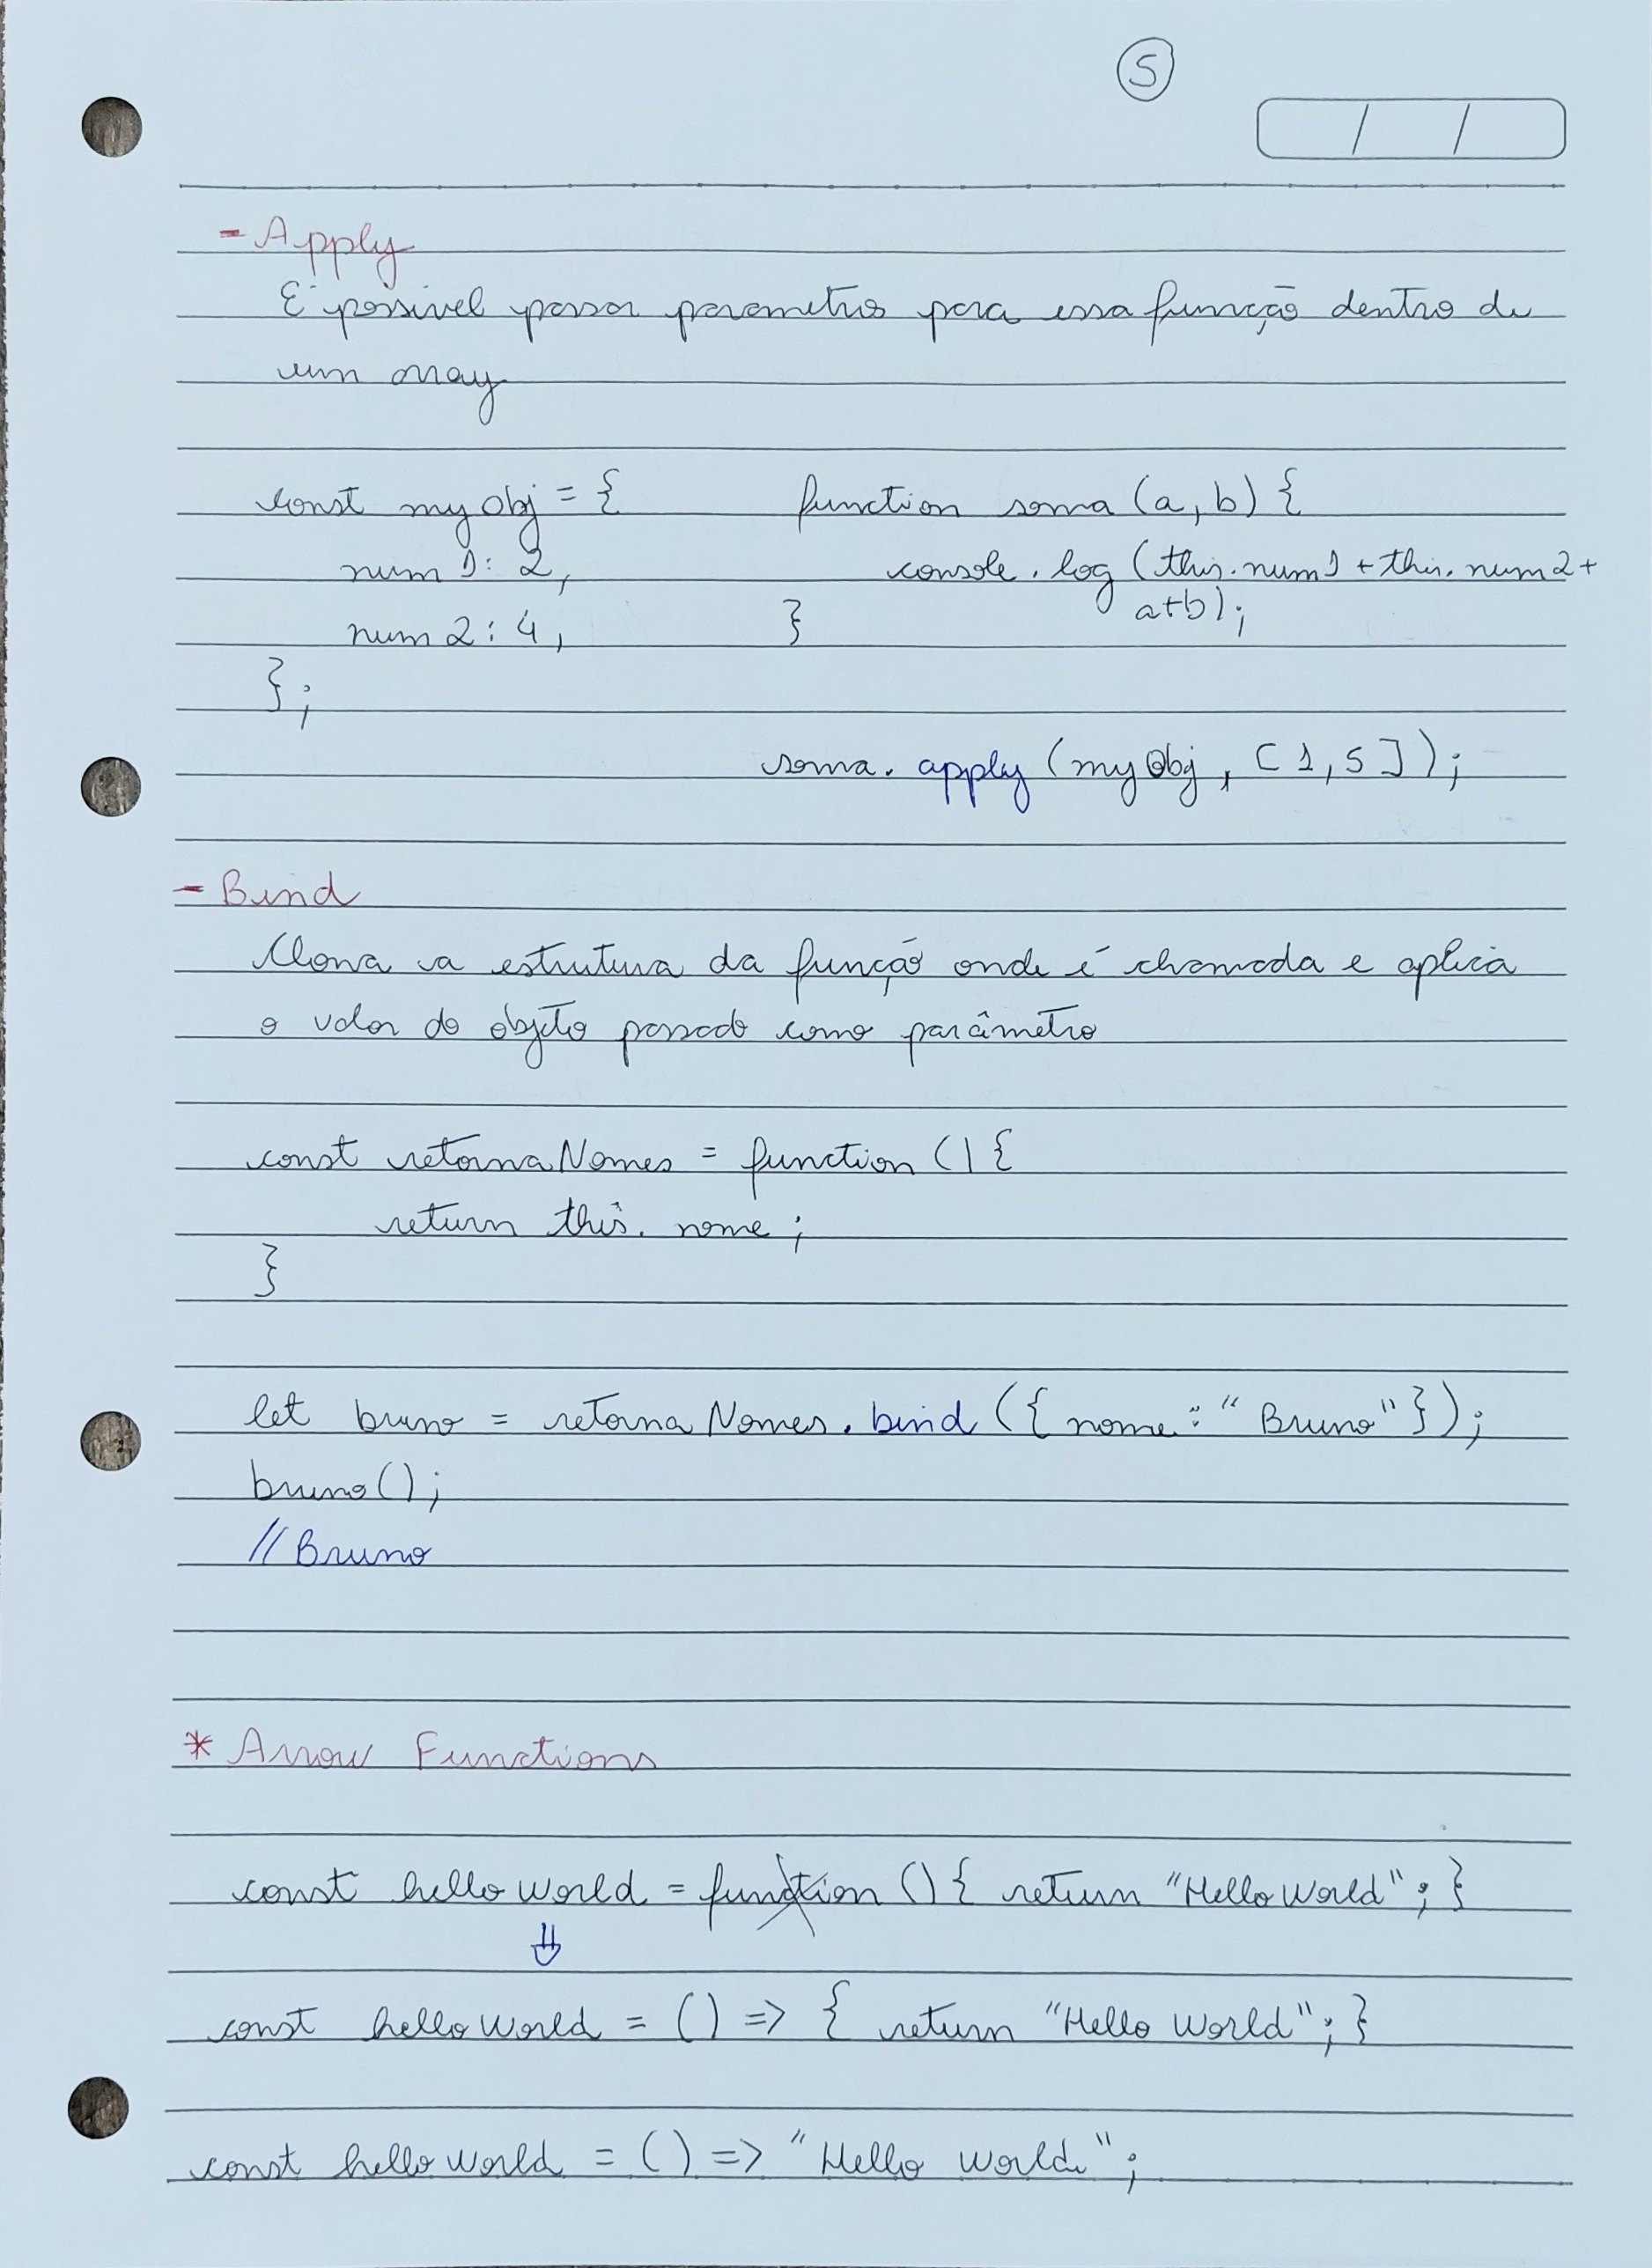 5
/ /
- Apply
É possivel passar parametros para essa função dentro de
um array
const myObj = {
num1: 2,
num2: 4,
};
function soma (a, b) {
console.log (this.num1 + this.num2 +
a+b);
}
soma.apply (myObj, [1,5]);
- Bind
Clona a estrutura da função onde é chamada e aplica
o valor do objeto passado como parâmetro
const retornaNomes = function () {
return this.nome;
}
let bruno = retornaNomes.bind ({ nome: "Bruno" });
bruno();
// Bruno
* Arrow Functions
const helloWorld = function () { return "Hello World"; }
⇓
const helloWorld = () => { return "Hello World"; }
const helloWorld = () => "Hello World";